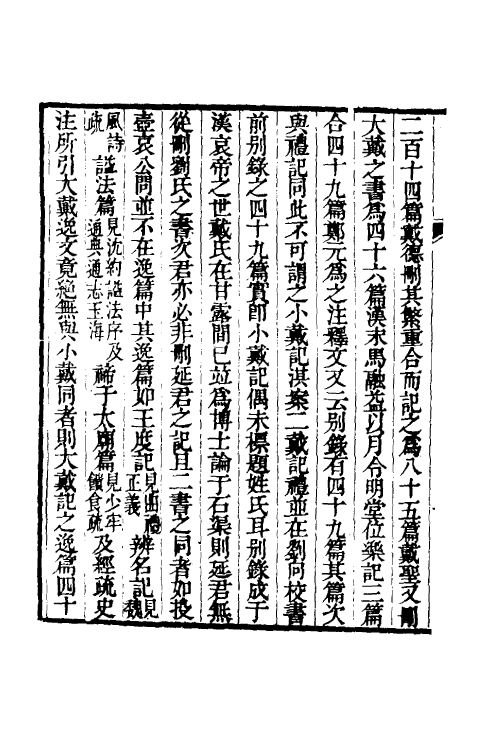 二百十四篇戴德刪其繁重合而記之爲八十五篇戴聖又刪
大戴之書爲四十六篇漢末馬融益以月令明堂位樂記三篇
合四十九篇鄭元爲之注釋文又云别錄有四十九篇其篇次
與禮記同此不可謂之小戴記淇案二戴記禮並在劉向校書
前别錄之四十九篇實卽小戴記偶未標題姓氏耳别錄成于
漢哀帝之世戴氏在甘露間已竝爲博士論于石渠則延君無
從刪劉氏之書次君亦必非刪延君之記且二書之同者如投
壺哀公問並不在逸篇中其逸篇如王度記見曲禮正義辨名記見魏
風詩疏諡法篇見沈約諡法序及通典通志玉海禘于太廟篇見少牢饋食疏及經疏史
注所引大戴逸文竟絕無與小戴同者則大戴記之逸篇四十